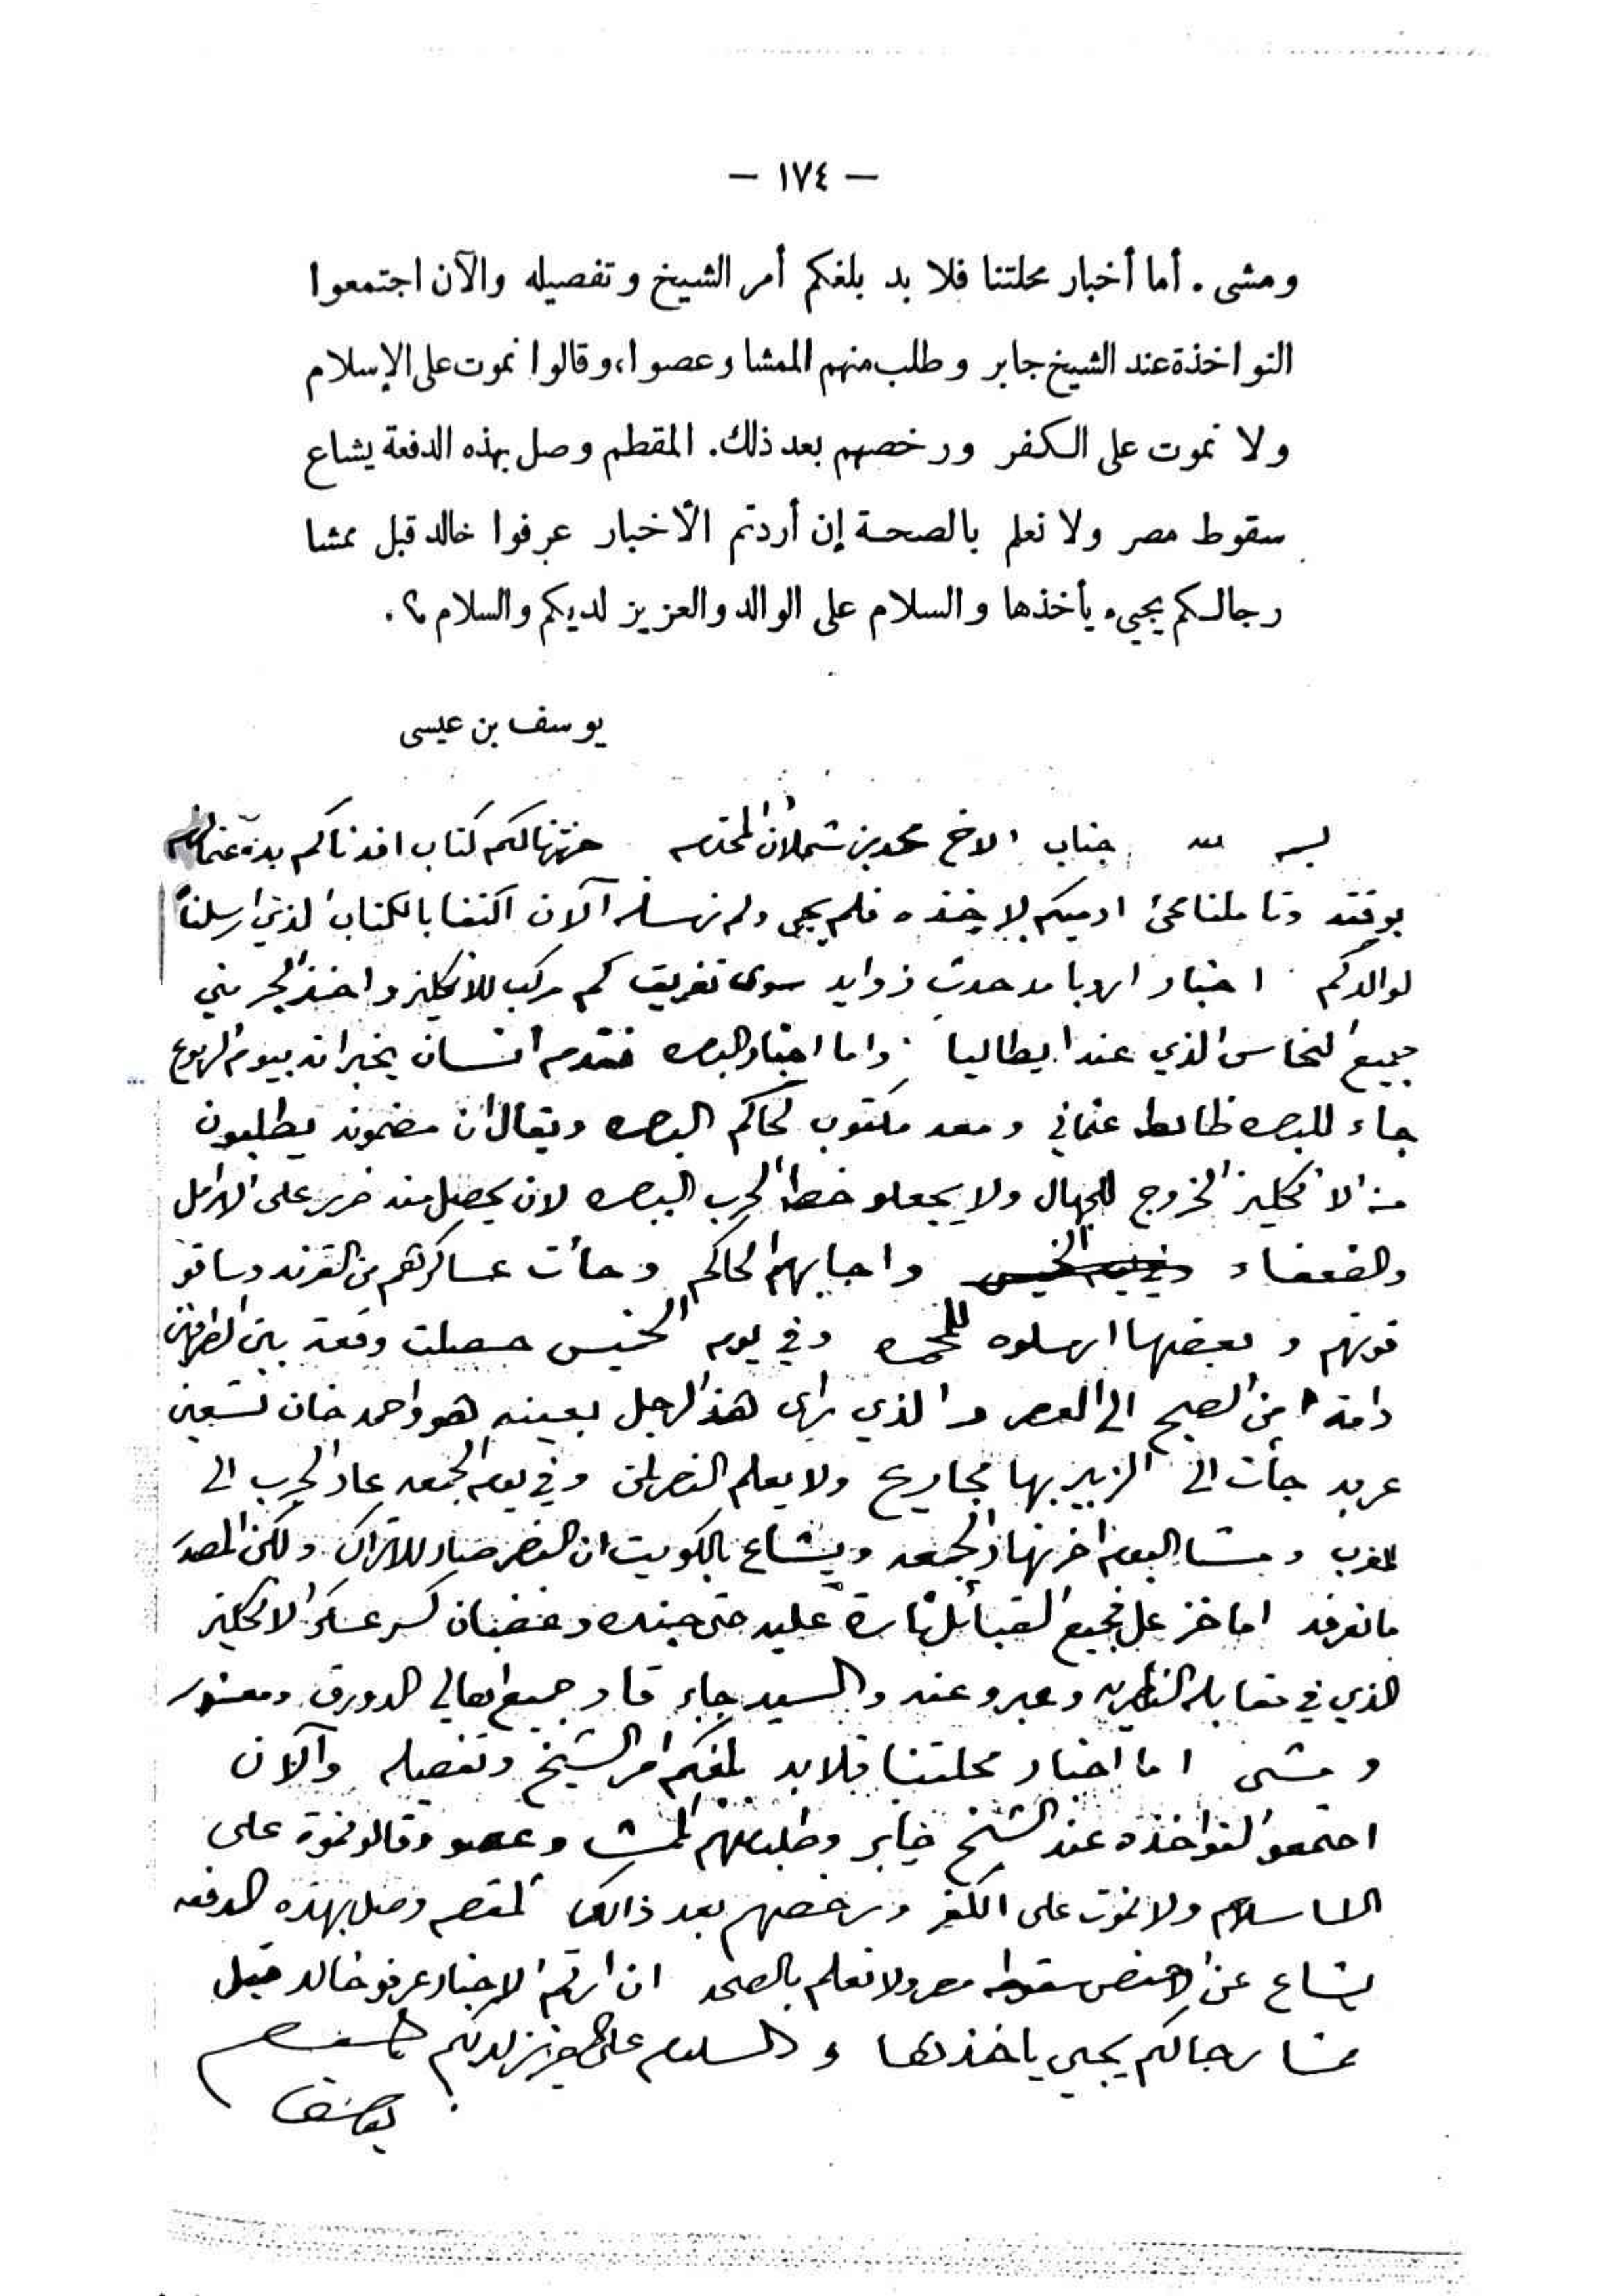 — ١٧٤ —
ومشى . أما أخبار محلتنا فلا بد بلغكم أمر الشيخ وتفصيله والآن اجتمعوا
النواخذة عند الشيخ جابر وطلب منهم الممشا وعصوا، وقالوا نموت على الإسلام
ولا نموت على الكفر ورخصهم بعد ذلك . المقطم وصل بهذه الدفعة يشاع
سقوط مصر ولا نعلم بالصحة إن أردتم الأخبار عرفوا خالد قبل ممشا
رجالكم يجيء يأخذها والسلام على الوالد والعزيز لديكم والسلام ؟ .
يوسف بن عيسى
بسمه جناب الاخ محمد بن شملان المحترم حررنا لكم كتاب افدناكم به
بوقته وتاملنا مجئ ادميكم لاخذه فلم يجي ولم نرسله الآن اكتفا بالكتاب الذي ارسلنا
لوالدكم اخبار اروبا مد حدث زوايد سوى تغريق كم مركب للانكليز واخذ الجرمني
جميع النحاس الذي عند ايطاليا واما اخبار البصره فقدم انسان يخبر انه بيوم الربوع
جاء للبصره ظابط عثماني ومعه مكتوب لحاكم البصره ويقال ان مضمونه يطلبون
من الانكليز الخروج للجهال ولا يجعلو خط الحرب البصره لان يحصل منه ضرر على الارامل
والضعفاء واجابهم الحاكم وجأت عساكرهم من القرنه وساقو
قوتهم وبعضها ارسلوه للمحمره وفي يوم الخميس حصلت وقعة بين الطرفين
دامة من الصبح الى العصر والذي راى هذا الرجل بعينه هو واحمد خان تسعين
عربه جأت الى الزبير بها مجاريح ولا يعلم النصر لمن وفي يوم الجمعه عاد الحرب الى
المغرب ومشا البوم اخر نهار الجمعه ويشاع بالكويت ان النصر صار للاتراك ولكن المصدر
ما نعرفه اما خزعل فجميع القبائل ثارة عليه حتى وغضبان كسر عسكر الانكليز
الذي في مقابلة الناصريه وعبرو عنه والسيد جابر قاد جميع اهالي الدورق
ومشى اما اخبار محلتنا فلابد بلغكم امر الشيخ وتفصيله والآن
اجتمعو النواخذه عند الشيخ جابر وطلب منهم الممشا وعصو وقالو نموة على
الاسلام ولا نموت على الكفر ورخصهم بعد ذالك المقطم وصل بهذه الدفعه
يشاع سقوط مصر ولا نعلم بالصحه ان اردتم الاخبار عرفو خالد قبل
ممشا رجالكم يجي ياخذها والسلام على العزيز لديكم
يوسف